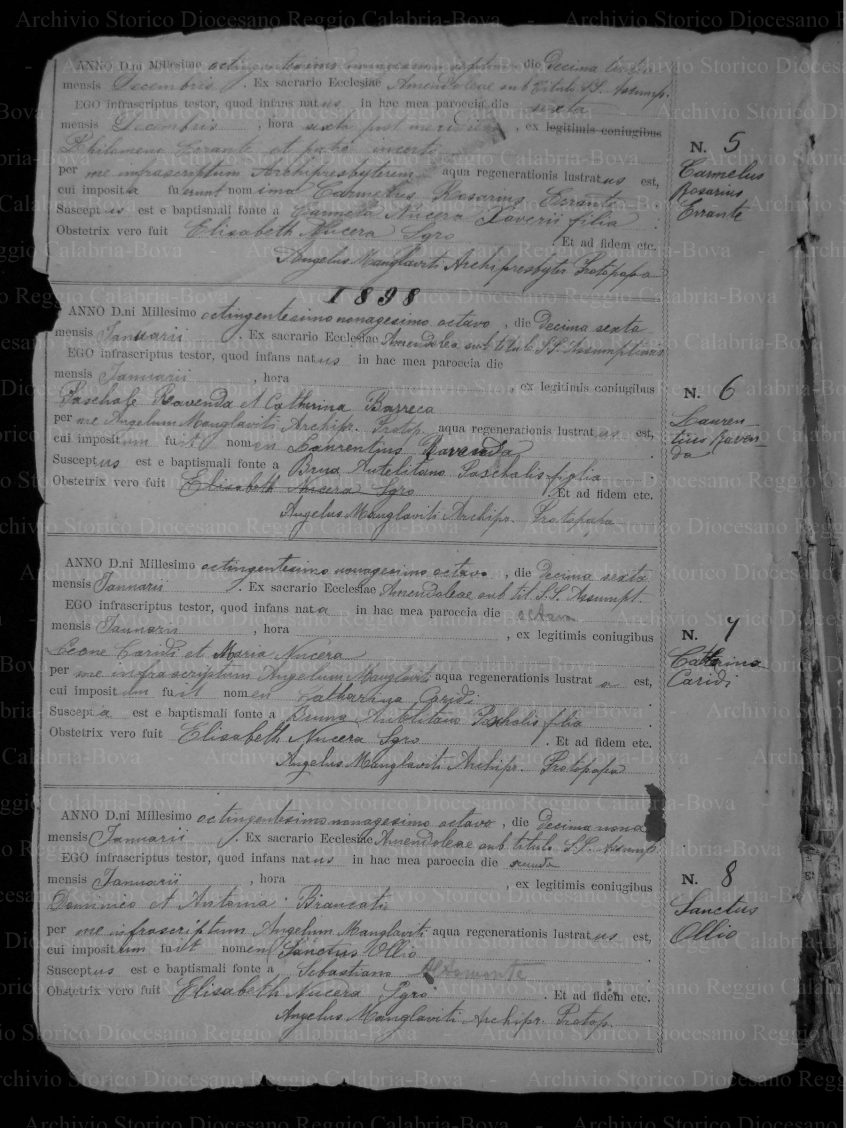 ANNO D.ni Millesimo octingentesimo nonagesimo septimo die Decima tertia
mensis Decembris. Ex sacrario Ecclesiae Amendoleae sub titulo S.S. Assump.
EGO infrascriptus testor, quod infans natus in hac mea paroccia die sexta
mensis Decembris, hora sexta post meridiem, ex legitimis coniugibus
Philomena Errante et patre incerto
N. 5
per me infrascriptum Archipresbyterum aqua regenerationis lustratus est,
Carmelus
cui imposita fuerunt nomima Carmelus Rosarius Errante
Rosarius
Susceptus est e baptismali fonte a Carmela Nucera Xaverii filia.
Errante
Obstetrix vero fuit Elisabeth Nucera Sgro. Et ad fidem etc.
Angelus Manglaviti Archipresbyter Protopapa
1898
ANNO D.ni Millesimo octingentesimo nonagesimo octavo, die Decima sexta
mensis Januarii. Ex sacrario Ecclesiae Amendolea sub titulo S.S. Assumptionis
EGO infrascriptus testor, quod infans natus in hac mea paroecia die
mensis Januarii, hora, ex legitimis coniugibus
N. 6
Paschale Ravenda et Catherina Barreca
per me Angelum Manglaviti Archipr. Protop. aqua regenerationis lustratus est,
Lauren-
cui impositum fuit nomen Laurentius Ravenda.
tius Raven-
da
Susceptus est e baptismali fonte a Bruna Autelitano Paschalis figlia
Obstetrix vero fuit Elisabeth Nucera Sgro. Et ad fidem etc.
Angelus Manglaviti Archipr. Protopapa
ANNO D.ni Millesimo octingentesimo nonagesimo octavo, die Decima sexta
mensis Januarii. Ex sacrario Ecclesiae Amendoleae sub tit. S.S. Assumpt.
EGO infrascriptus testor, quod infans nata in hac mea paroecia die octava
mensis Januarii, hora, ex legitimis coniugibus
N. 7
Leone Caridi et Maria Nucera
Catherina
per me infrascriptum Angelum Manglaviti aqua regenerationis lustrata est,
Caridi
cui impositum fuit nomen Catharina Caridi.
Suscepta est e baptismali fonte a Bruna Autelitano Paschalis filia
Obstetrix vero fuit Elisabeth Nucera Sgro. Et ad fidem etc.
Angelus Manglaviti Archipr. Protopapa
ANNO D.ni Millesimo octingentesimo nonagesimo octavo, die Decima nona
mensis Januarii. Ex sacrario Ecclesiae Amendoleae sub titulo S.S. Assump.
EGO infrascriptus testor, quod infans natus in hac mea paroecia die
mensis Januarii, hora, ex legitimis coniugibus
N. 8
Dominico et Antonia Brancati
Sanctus
per me infrascriptum Angelum Manglaviti aqua regenerationis lustratus est,
Ollio
cui impositum fuit nomen Sanctus Ollio.
Susceptus est e baptismali fonte a Sebastiano Altomonte
Obstetrix vero fuit Elisabeth Nucera Sgro. Et ad fidem etc.
Angelus Manglaviti Archipr. Protop.
Archivio Storico Diocesano Reggio Calabria-Bova